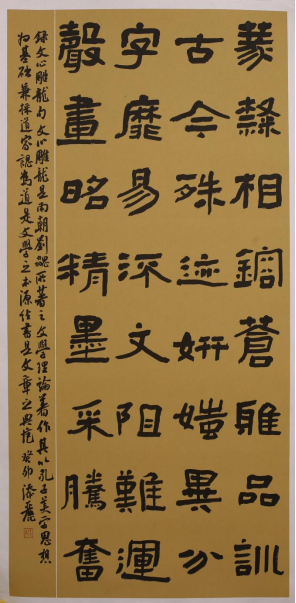 篆隸相鎔蒼雅品訓
古今殊迹妍媸異分
字靡易流文阻難運
聲畫昭精墨采騰奮
錄文心雕龍句文心雕龍是南朝劉勰所著之文學理論著作其以孔子美學思想
為基礎兼採道家認為道是文學之本源經書是文章之典範癸卯